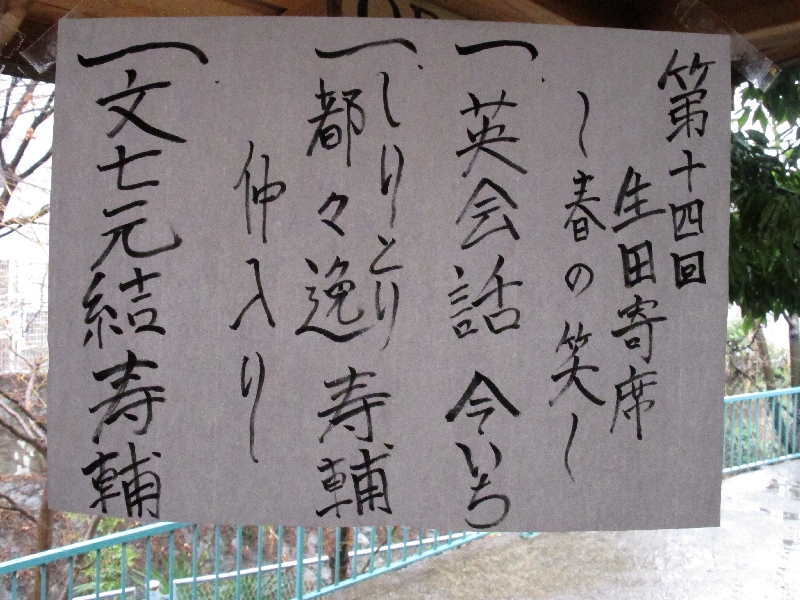 第十四回
生田寄席
～春の笑～
一 英会話 今いち
一 しりとり
都々逸 寿輔
仲入り
一 文七元結 寿輔